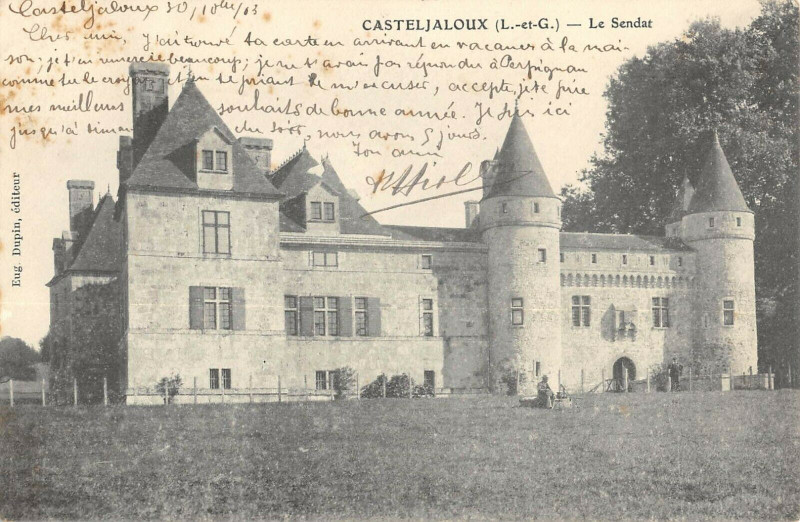 Casteljaloux 30/10bre/03
CASTELJALOUX (L.-et-G.) — Le Sendat
Cher ami, J'ai trouvé ta carte en arrivant en vacances à la mai-
son; je t'en remercie beaucoup; je ne t'avais pas répondu à Perpignan
comme tu le croyais et en te priant de m'excuser, accepte, je te prie
mes meilleurs souhaits de bonne année. Je suis ici
jusqu'à dimanche soir, nous avons 5 jours.
Ton ami
Eug. Dupin, éditeur